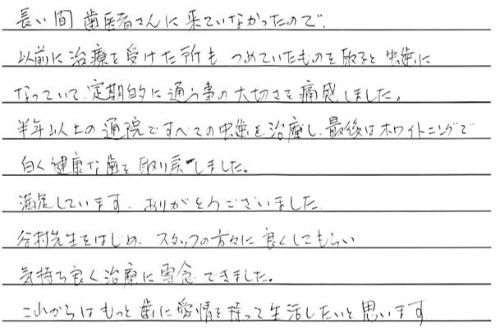 長い間 歯医者さんに来ていなかったので、
以前に治療を受けた所も つめていたものを取ると虫歯に
なっていて、定期的に通う事の大切さを痛感しました。
半年以上の通院ですべての虫歯を治療し、最後はホワイトニングで
白く健康な歯を取り戻しました。
満足しています。ありがとうございました
谷村先生をはじめ、スタッフの方々に良くしてもらい
気持ち良く治療に専念できました。
これからはもっと歯に愛情を持って生活したいと思います